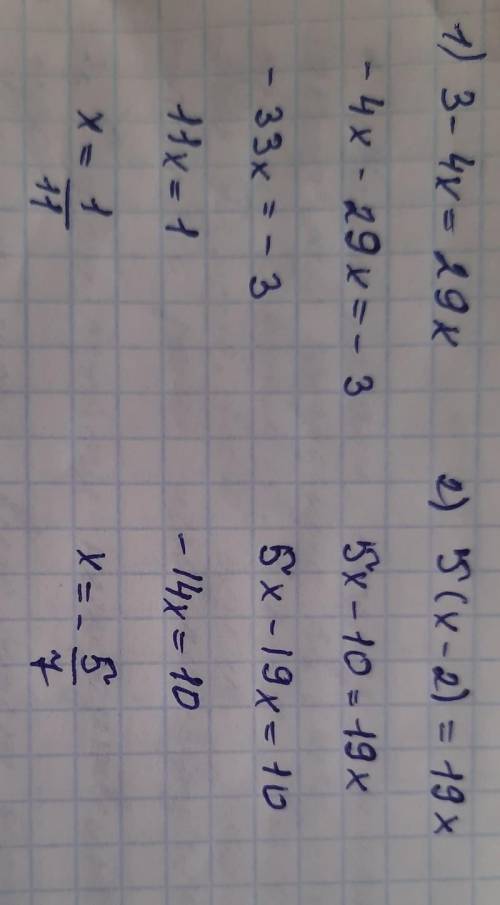 1) 3 - 4x = 29x
- 4x - 29x = - 3
- 33x = - 3
11x = 1
x = 1/11
2) 5(x - 2) = 19x
5x - 10 = 19x
5x - 19x = 10
- 14x = 10
x = - 5/7